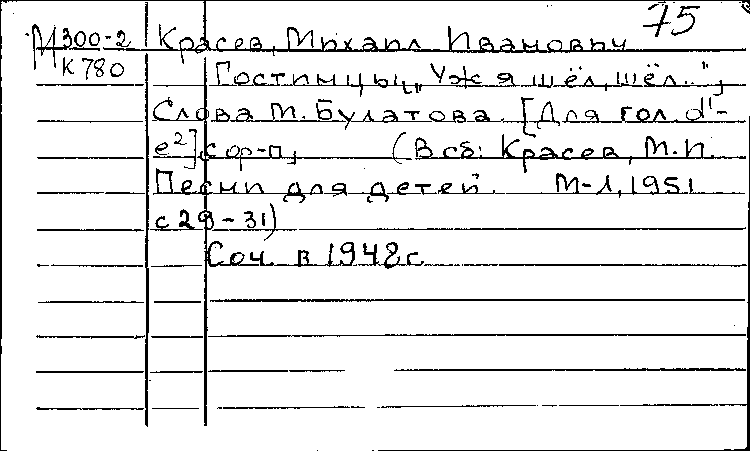 75
М 300-2 Красев, Михаил Иванович
К 780 Гостинцы „Уж я шёл, шёл..",
Слова М. Булатова. [Для гол. d¹-
e²] с ор-п, (В сб: Красев, М.И.
Песни для детей. М-Л, 1951
с 29-31)
Соч. в 1948 г